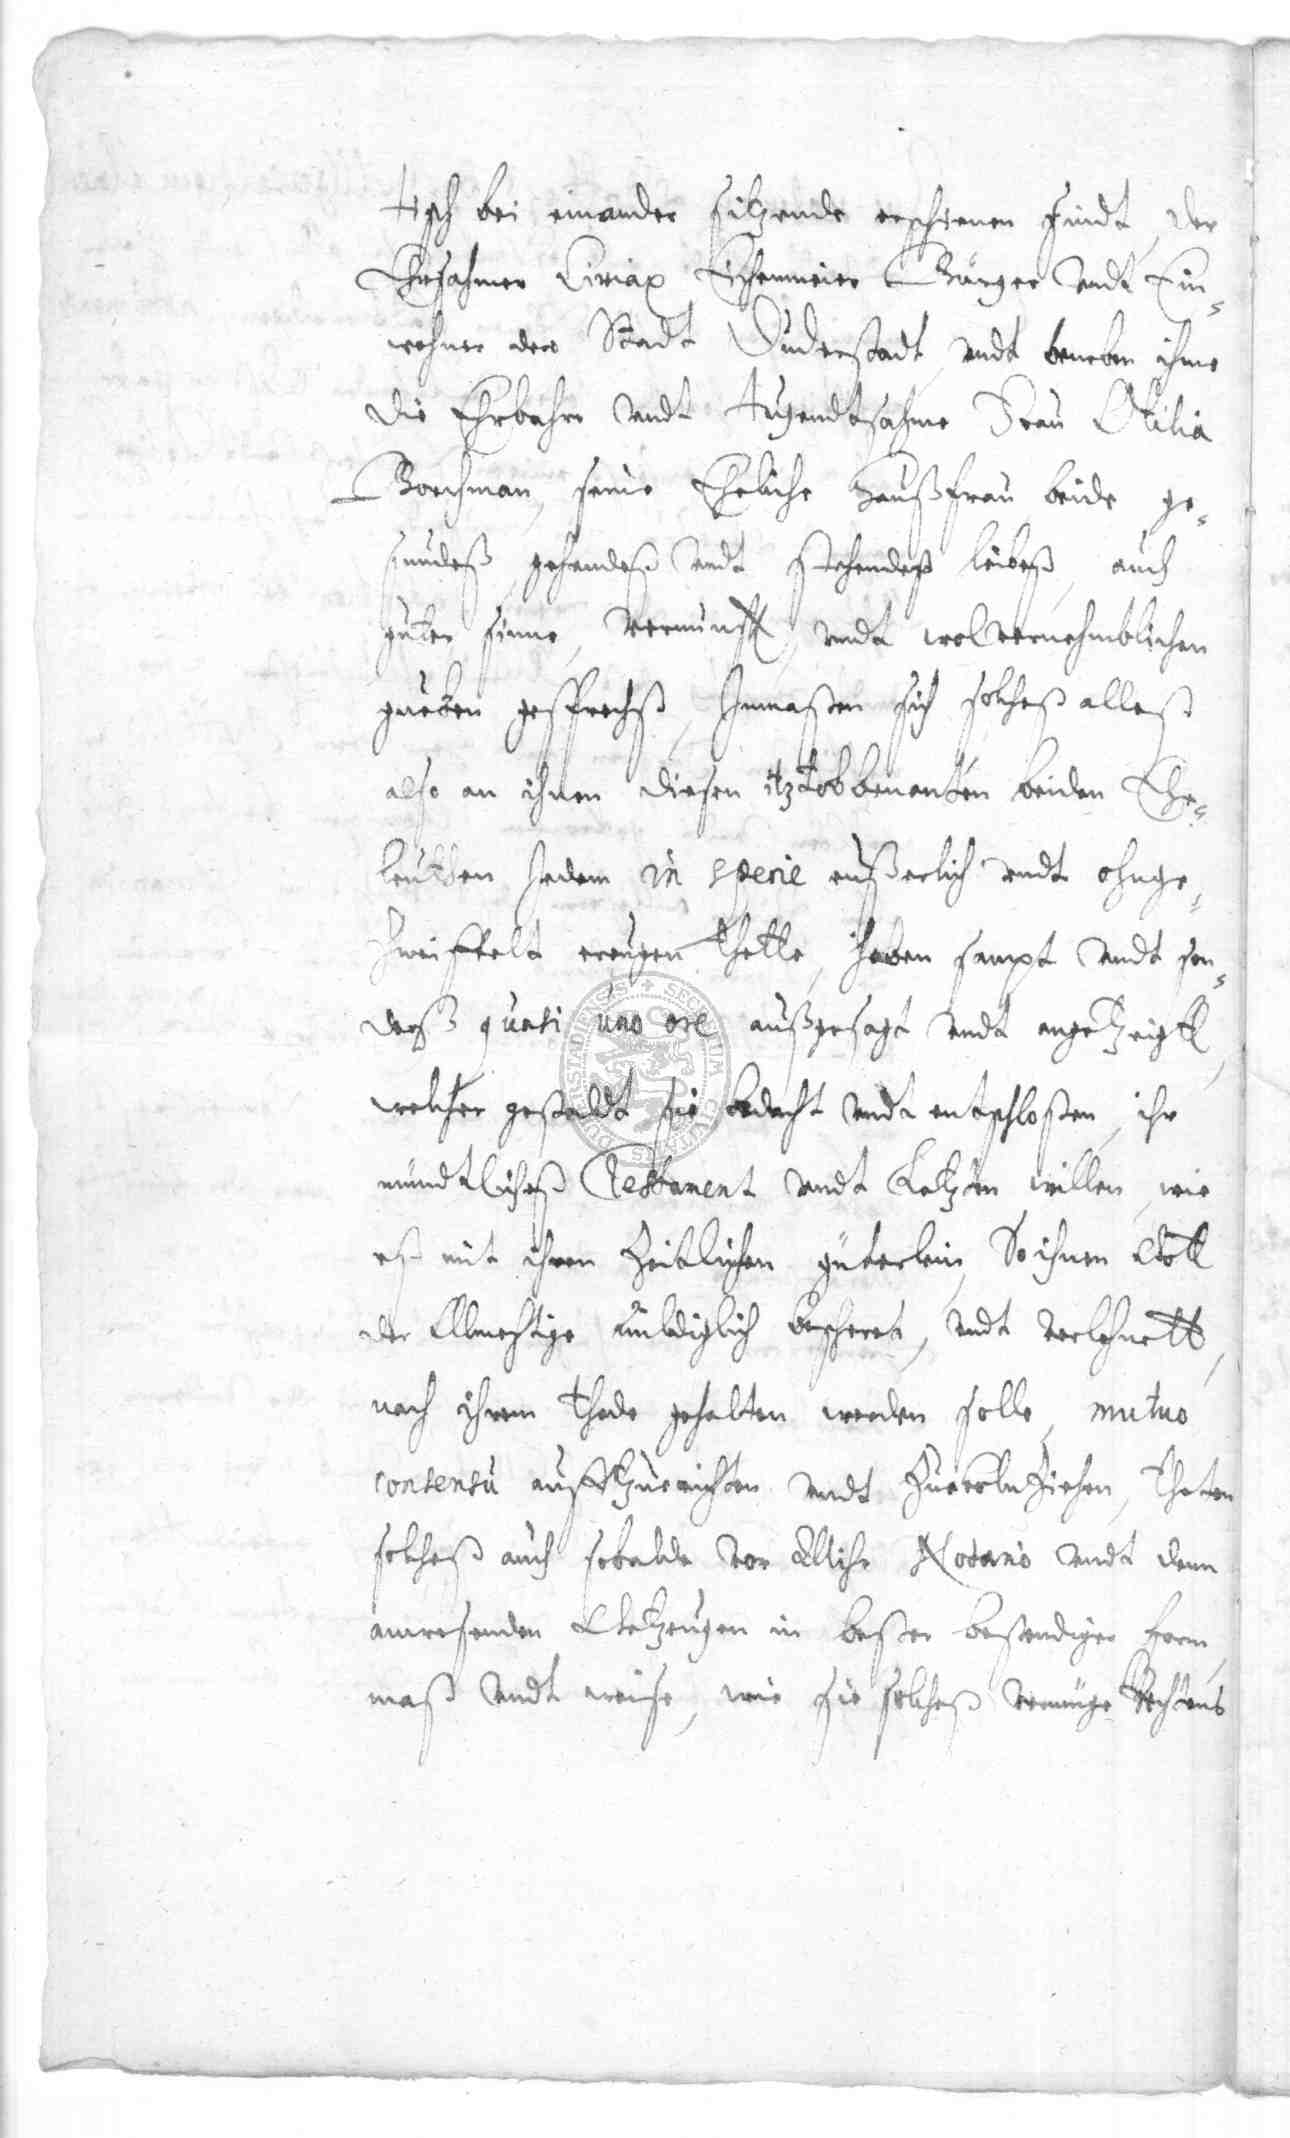 tisch bei einander sitzende erschienen sindt, der
Ehrsahmer Ciriax Eschemeier Bürger vndt Ein¬
wohner der Stadt Duderstadt, vndt beneben ihme
die Ehrbahre vndt tugendtsahme Frau Otilia
Borchman, seine Eheliche Haußfrau, beide ge¬
sundeß, gehendeß vndt stehendeß leibeß, auch
guter sinne, vernunfft, vndt wolvernehmblichen
gueten gesprechß, Inmaßen sich solcheß alleß
also an ihnen diesen itztobbenanten beiden Ehe¬
leuthen Jedem in specie eußerlich vndt ohnge¬
zweiffelt ereugen thette, haben sampt vndt son¬
derß quasi uno ore außgesagt vndt angetzeigtt,
welcher gestaldt sie bedacht vndt entschloßen, ihr
mundtlicheß Testament vndt Letzten willen, wie
eß mit ihren Zeitlichen güterlein, So ihnen Gott
der Allmechtige mildiglich bescheret, vndt verlehnett,
nach ihrem thode gehalten werden solle, mutuo
consensu auffzurichten vndt zuvolnziehen, theten
solcheß auch sobalde vor Mihr Notario vndt denn
anwesenden Getzeugen in bester bestendiger form,
maß vndt weise, wie sie solcheß vermüge Rechtens
SECRETUM CIVITATIS DUDERSTADENSIS